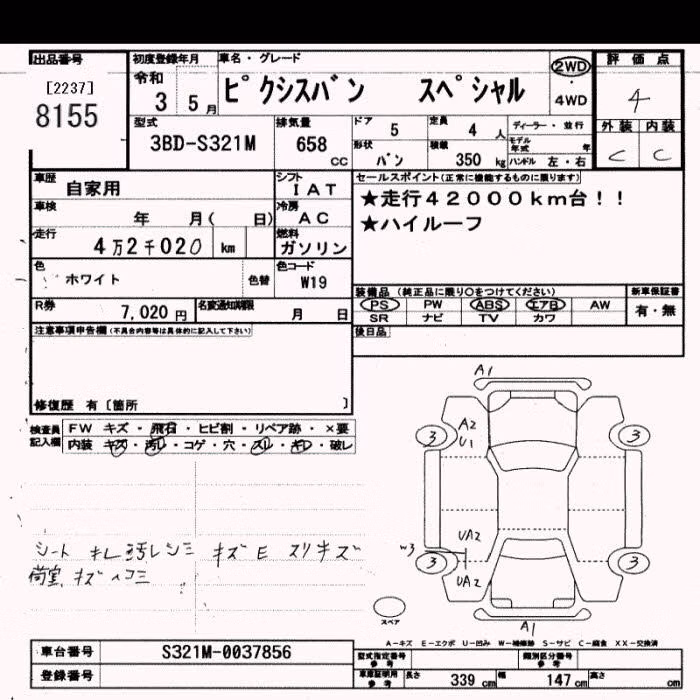 出品番号 初度登録年月 車名・グレード 評価点
[2237] 令和 ピクシスバン スペシャル 2WD 4
8155 3 5月 ・
4WD
型式 排気量 ドア 5 定員 4人 ディーラー・並行 外装 内装
3BD-S321M 658 cc 形状 バン 積載 350 kg モデル年式 年 C C
ハンドル 左・右
車歴 自家用 シフト IAT セールスポイント(正常に機能するものに限ります)
車検 年 月( 日) 冷房 AC ★走行42000km台!!
走行 4万2千020 km 燃料 ガソリン ★ハイルーフ
色 ホワイト 色替 色コード W19
装備品 (純正品に限り○をつけてください) 新車保証書
R券 7,020円 名変通知期限 月 日 PS PW ABS エアB AW 有・無
SR ナビ TV カワ
注意事項申告欄(不具合内容等は具体的に記入して下さい) 後日品
修復歴 有 [箇所 ]
検査員記入欄 FW キズ・飛石・ヒビ割・リペア跡・×要
内装 キズ・汚レ・コゲ・穴・スレ・キレ・破レ
A1
3 A2 3
U1
シート キレ 汚レ シミ キズE スリキズ
荷室 キズ ヘコミ
UA2
W3
3 UA2 3
スペア
A1
A-キズ E-エクボ U-凹み W-補修跡 S-サビ C-腐食 XX-交換済
車台番号 S321M-0037856 型式指定番号 参考 類別区分番号 参考
登録番号 車庫証明用 参考 長さ 339 cm 幅 147 cm 高さ cm